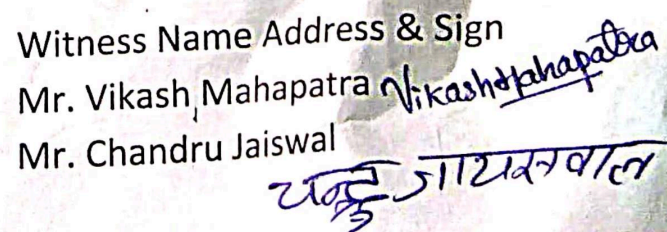 Witness Name Address & Sign
Mr. Vikash Mahapatra Vikash Mahapatra
Mr. Chandru Jaiswal
चन्द्रु जायसवाल